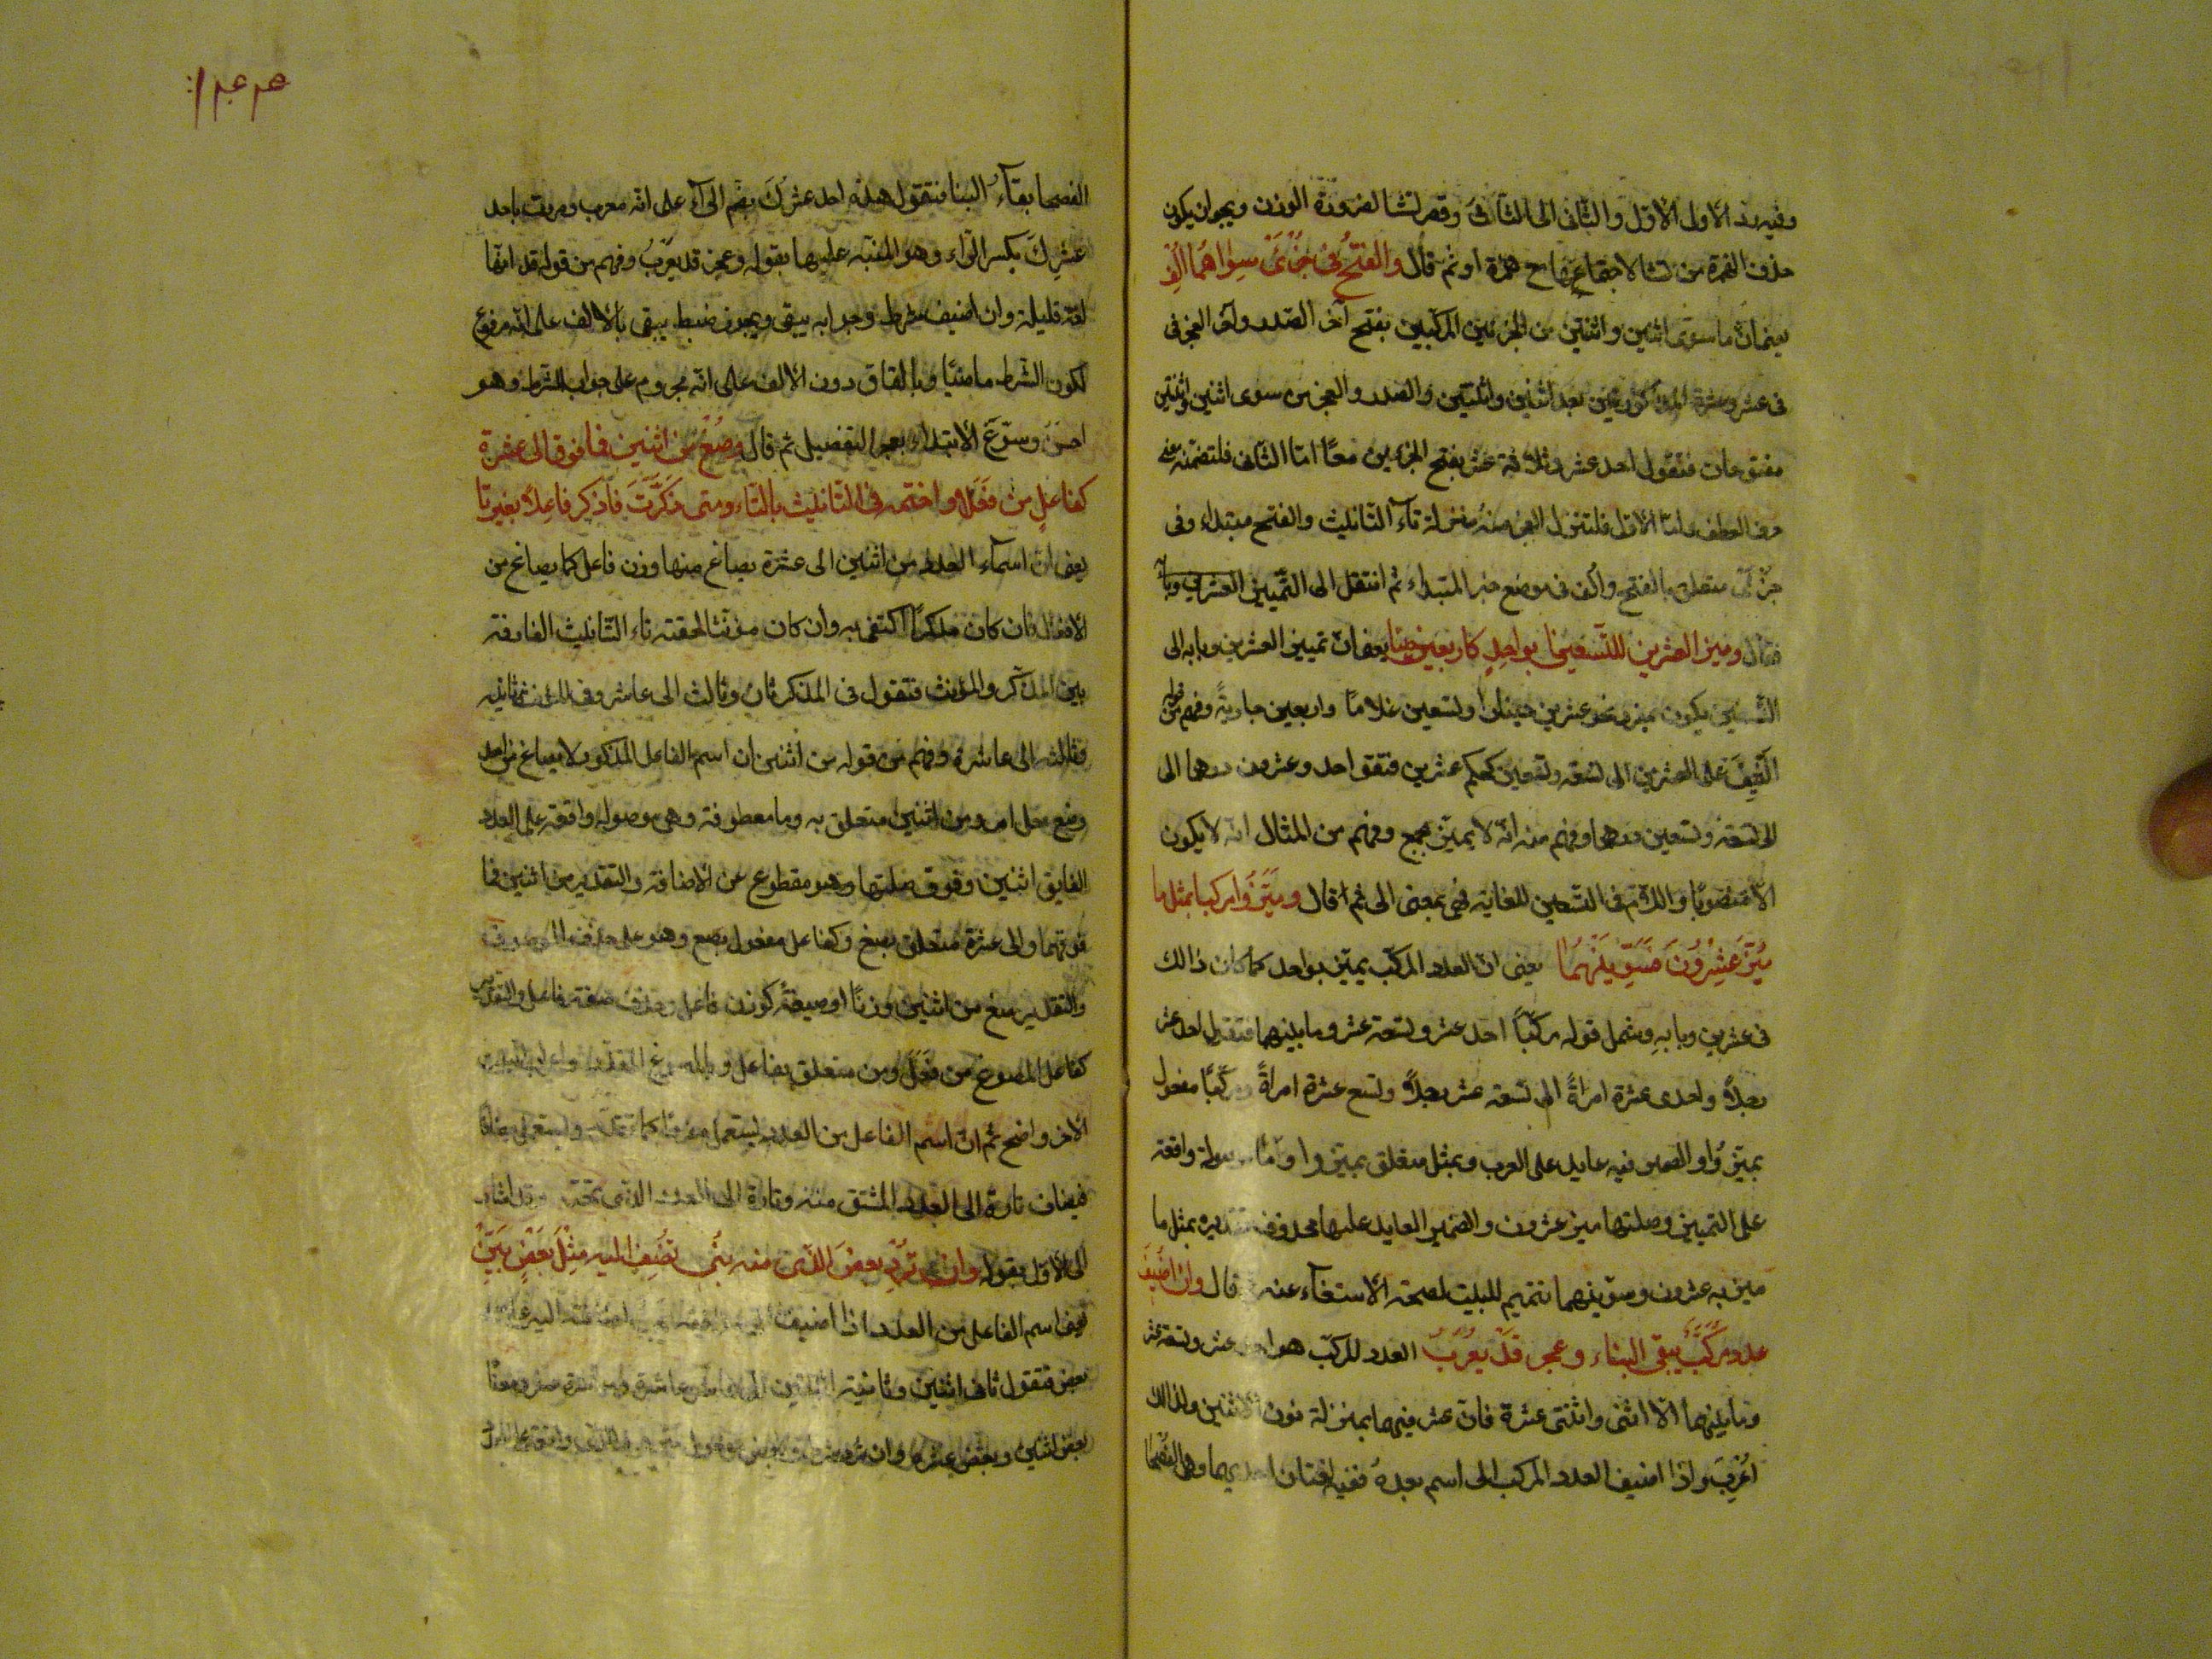 وفيه رد الاولى الاول والثانى الى الثانى وقصر تشا لضرورة الوزن ويجوز ان يكون
حذف الهمزة من تشا لاجتماعها مع همزة او ثم قال والفتح فى جزئى سواهما الف
يعنى ان ما سوى اثنين واثنتين من الجزئين المركبين بفتح آخر الصدر وآخر العجز فى
فى عشر وعشرة المذكورتين بعد اثنين واثنتين والصدر والعجز من سوى اثنين واثنتين
مفتوحان فتقول احد عشر وثلاثة عشر بفتح الجزئين معًا اما الثانى فلتضمنه معنى
حرف العطف واما الاول فلتنزل العجز منه منزلة تآء التانيث والفتح مبتداء وفى
جزئى متعلق بالفتح والف فى موضع خبر المبتداء ثم انتقل الى التمييز العشرين وبابه
فقال وميز العشرين للتسعينا بواحد كاربعين حينا يعنى ان تمييز العشرين وبابه الى
التسعين يكون بمفرد نحو عشرين دينارا وتسعين غلامًا واربعين جارية وفهم من قوله
النيف على العشرين الى تسعة وتسعين كحكم عشرين فتقول احد وعشرون درهما الى
الى تسعة وتسعين درهما وفهم منه انه لا يميز بجمع وفهم من المثال انه لا يكون
الا منصوبًا واللام فى التسعين للغاية فهى بمعنى الى ثم قال وميزوا مركبا بمثل ما
ميز عشرون فسوينهما يعنى ان العدد المركب يميز بواحد كما كان ذالك
فى عشرين وبابه وشمل قوله مركبًا احد عشر وتسعة عشر وما بينهما فتقول احد عشر
رجلاً واحدى عشرة امراةً الى تسعة عشر رجلاً وتسع عشرة امراةً ومركبًا مفعول
بميزوا والضمير فيه عايد على العرب وبمثل متعلق بميزوا وما موصولة واقعة
على التمييز وصلتها ميز عشرون والضمير العايد عليها محذوف تقديره بمثل ما
ميز به عشرون وسوينهما تتميم للبيت لصحة الاستغنآء عنه ثم قال وان اضيف
عدد مركب يبقى البناء وعجز قد يعرب العدد المركب هو احد عشر وتسعة عشر
وما بينهما الا اثنى واثنتى عشرة فان عشر فيهما بمنزلة نون الاثنين ولذالك
اعرب واذا اضيف العدد المركب الى اسم بعده ففيه لغتان احديهما وهى الفصحا
الفصحا بقآء البنا فتقول هذه احد عشرك بضم الرآء على انه معرب ومررت باحد
عشرك بكسر الرآء وهو المنبه عليها بقوله وعجز قد يعرب وفهم من قوله قد انها
لغة قليلة وان اضيف شرط وجوابه يبقى ويجوز ضبط يبقى بالالف على انه مرفوع
لكون الشرط ماضيًا وبالقاف دون الالف على انه مجزوم على جواب الشرط وهو
احسن وسوغ الابتداء بعجز التفضيل ثم قال وصغ من اثنين فما فوق الى عشرة
كفاعل من فعلا واختمه فى التانيث بالتاء ومتى ذكرت فاذكر فاعلاً بغير تا
يعنى ان اسمآء العدد من اثنين الى عشرة يصاغ منها وزن فاعل كما يصاغ من
الافعال فان كان مذكرا اكتفى به وان كان مؤنثا لحقته تاء التانيث الفارقة
بين المذكر والمؤنث فتقول فى المذكر ثان وثالث الى عاشر وفى المؤنث ثانية
وثالثة الى عاشرة وفهم من قوله من اثنين ان اسم الفاعل المذكور لا يصاغ من احد
وصغ فعل امر ومن اثنين متعلق به وما معطوفة وهى موصولة واقعة على العدد
الفايق اثنين وفوق صلتها وهو مقطوع عن الاضافة والتقدير من اثنين فما
فوقهما والى عشرة متعلق بصغ وكفاعل مفعول بصغ وهو على حذف الموصوف
والتقدير صغ من اثنين وزنًا او صيغةً كوزن فاعل وحذف صفة فاعل والتقدير
كفاعل المصوغ من فعل ومن متعلق بفاعل وبالمصوغ المقدر واعراب البيت
الاخر واضح ثم ان اسم الفاعل من العدد يستعمل مفردًا كما تقدم ويستعمل مضافا
فيضاف تارة الى العدد المشتق منه وتارة الى العدد الذى تحته وقد اشار
الى الاول بقوله وان ترد بعض الذى منه بنى تضف اليه مثل بعض بين
يعنى اسم الفاعل من العدد اذا اضيف الى اليه على
بعض فتقول ثانى اثنين وثانية اثنتين الى عاشر عشرة وعاشرة عشر ومعنا
بعض اثنين وبعض عشرة وان ترد شرط وبعض مفعول بترد والذى واقعة على العدد